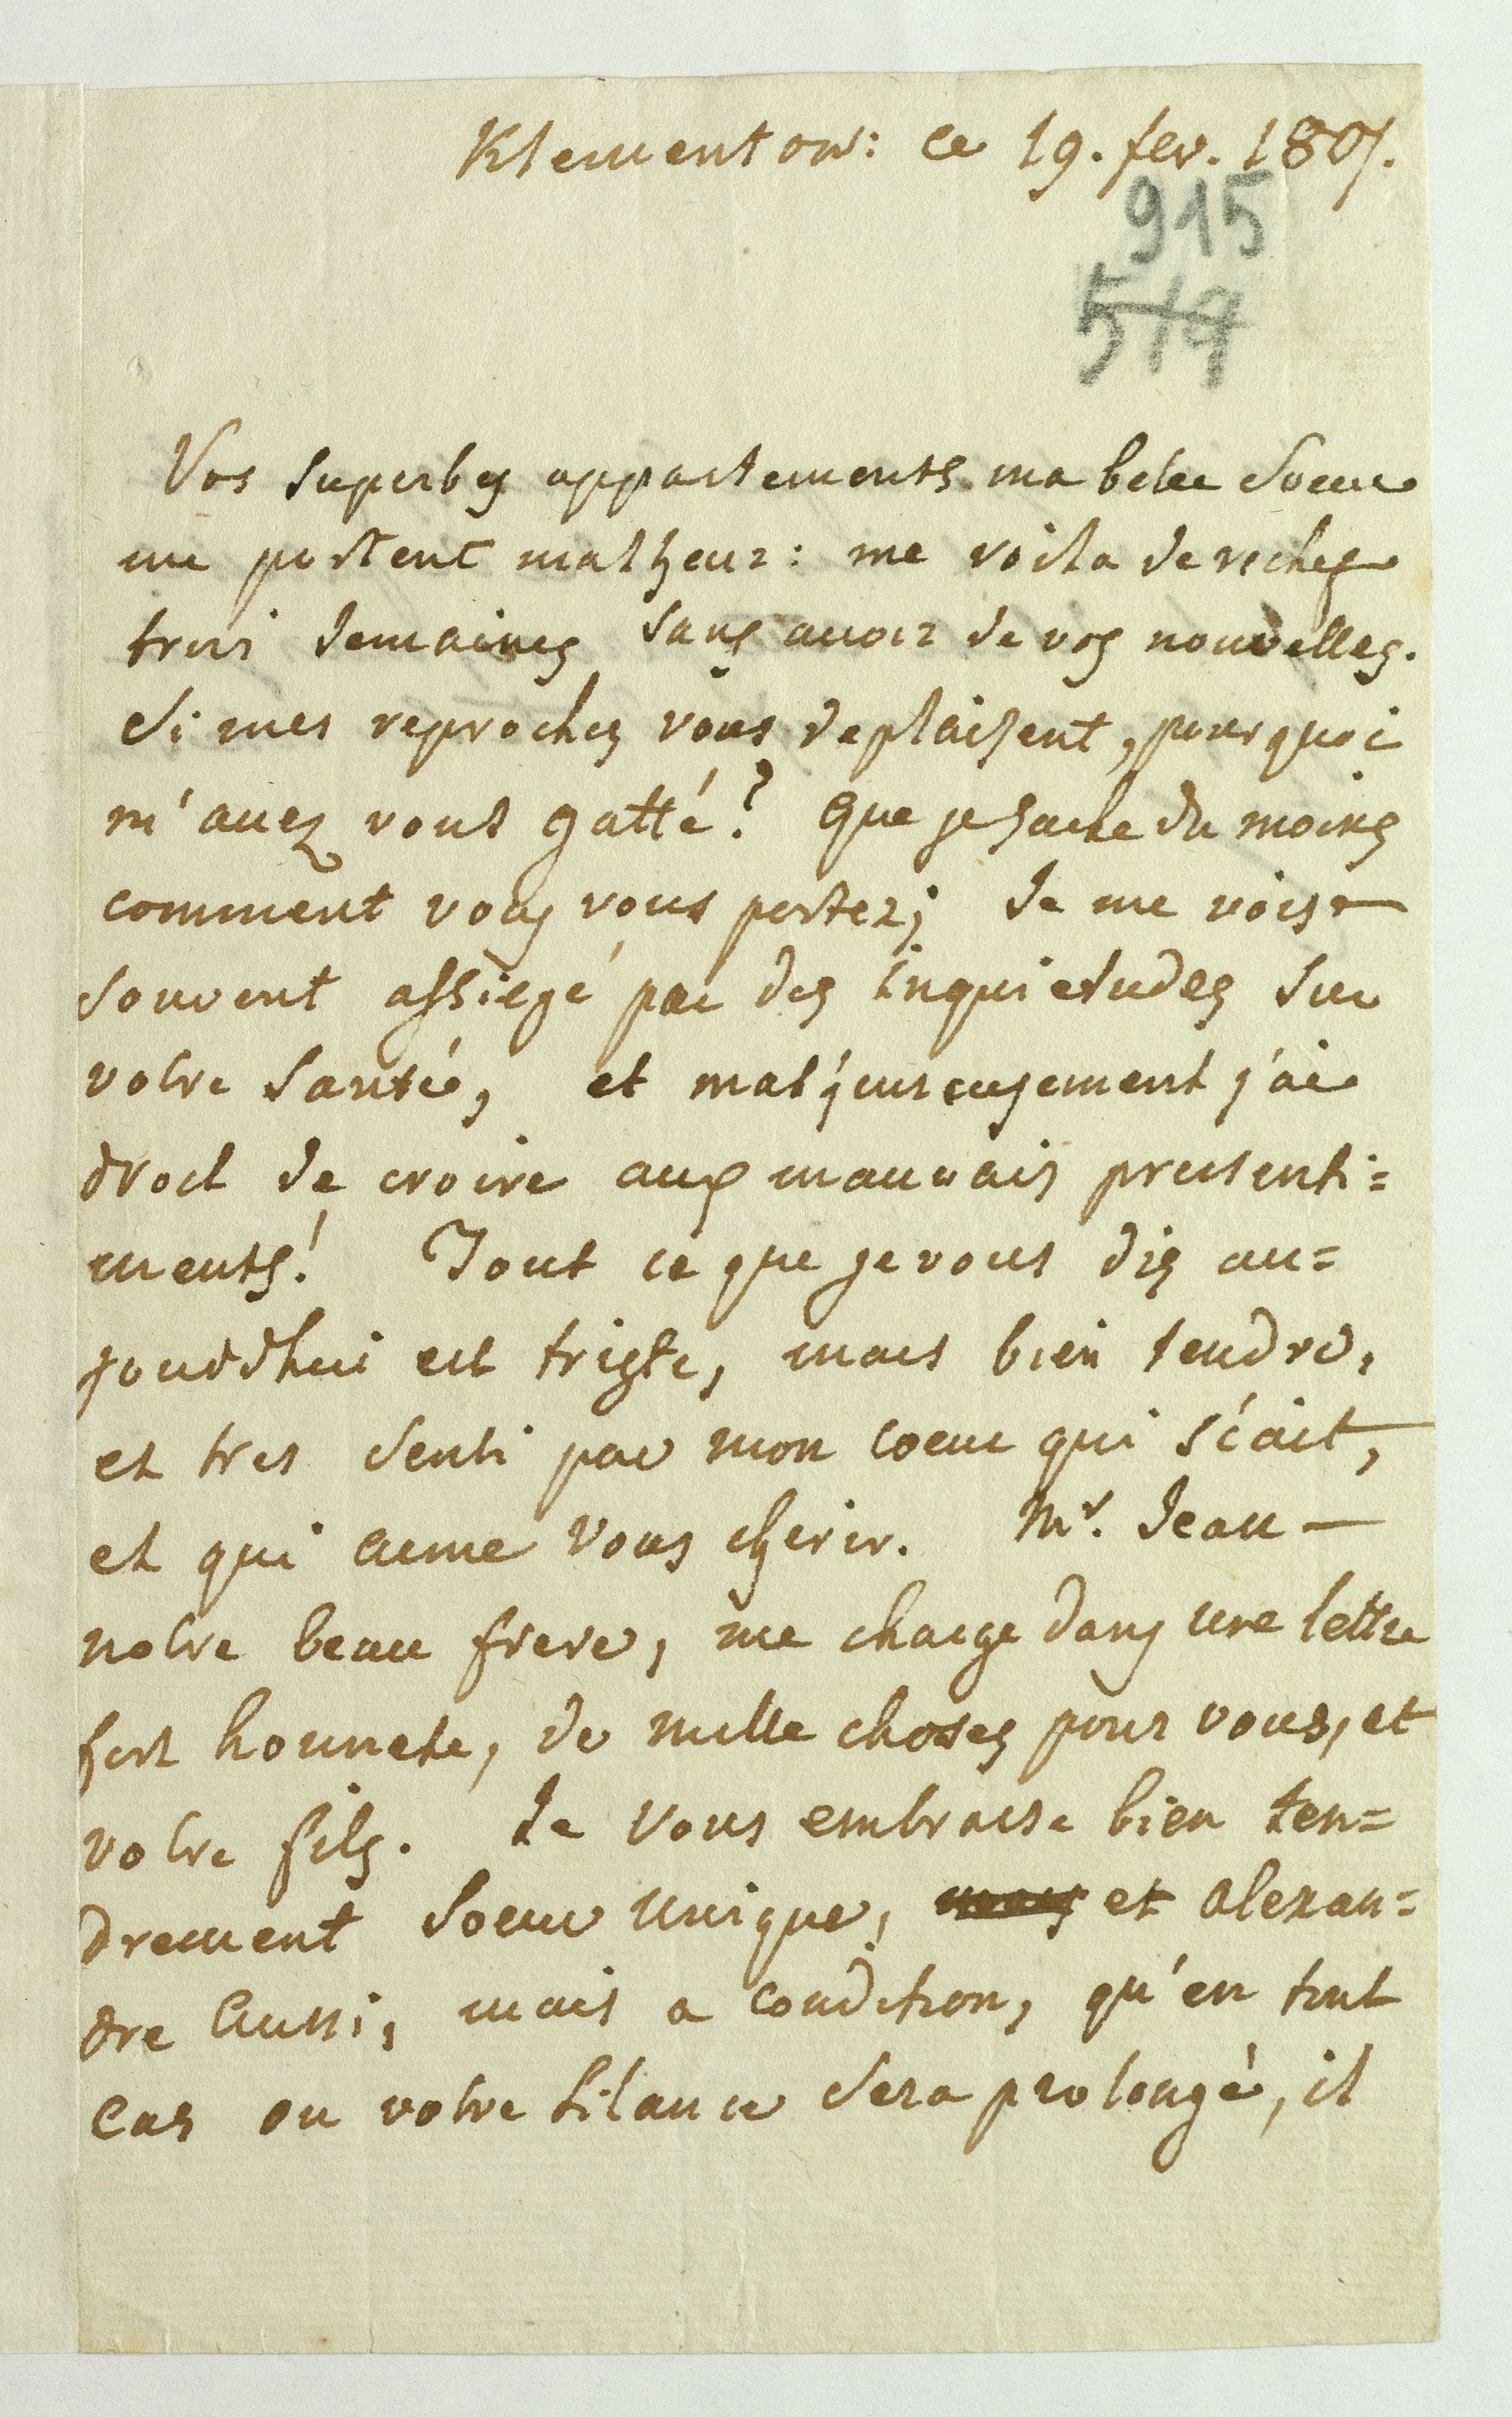 Klementow: ce 19. fev. 1807.
915
514
Vos superbes appartements ma belle Soeur
me portent malheur: me voila derechef
trois semaines sans avoir de vos nouvelles.
Si mes reproches vous deplaisent, pourquoi
m'avez vous gatté? Que je sache du moins
comment vous vous portez; Je me vois
souvent assiegé par des inquietudes sur
votre santé, et malheureusement j'ai
droit de croire aux mauvais pressenti=
ments! Tout ce que je vous dis au=
jourdhui est triste, mais bien tendre,
et tres senti par mon coeur qui sçait,
et qui aime vous cherir. Mr. Jean —
notre beau frere, me charge dans une lettre
fort honnete, de mille choses pour vous, et
votre fils. Je vous embrasse bien ten=
drement Soeur unique, et Alexan=
dre aussi, mais a condition, qu'en tout
cas ou votre silance sera prolongé, il